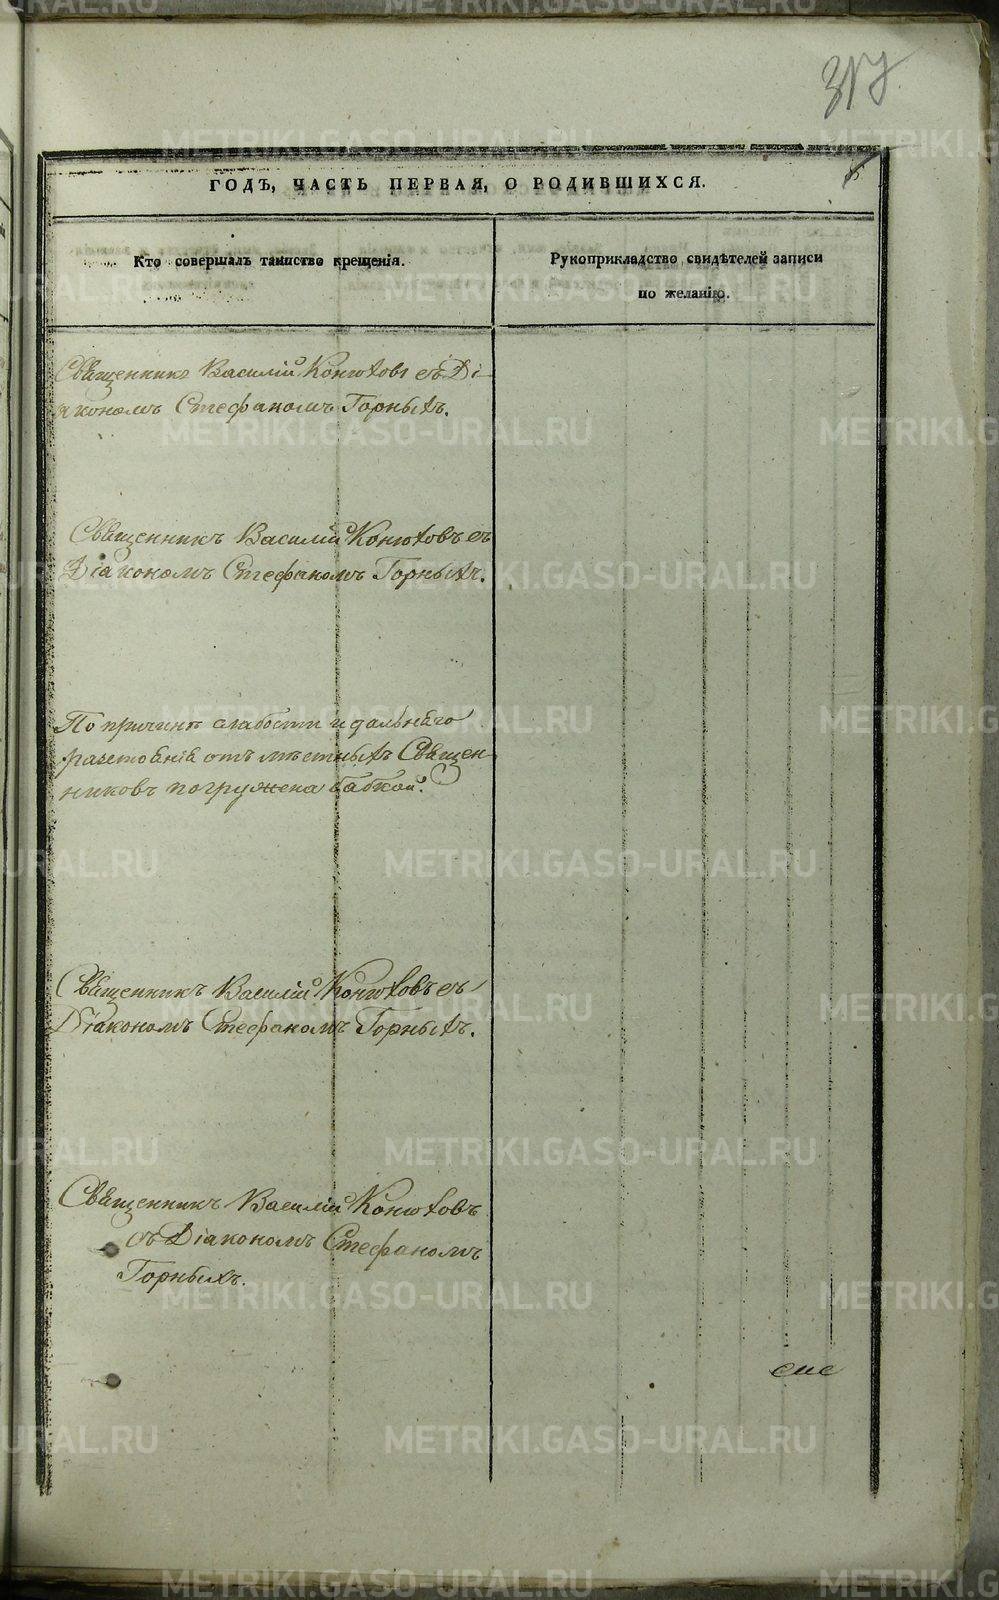 317.
ГОДЪ, ЧАСТЬ ПЕРВАЯ, О РОДИВШИХСЯ.
Кто совершалъ таинство крещенія.
Рукоприкладство свидѣтелей записи
по желанію.
Священникъ Василій Конюховъ съ Ді-
акономъ Стефаномъ Горныхъ.
Священникъ Василій Конюховъ съ
Діакономъ Стефаномъ Горныхъ.
По причинѣ слабости и дальняго
разстоянія отъ мѣстныхъ Священ-
никовъ погружена бабкой.
Священникъ Василій Конюховъ съ
Діакономъ Стефаномъ Горныхъ.
Священникъ Василій Конюховъ
съ Діакономъ Стефаномъ
Горныхъ.
METRIKI.GASO-URAL.RU